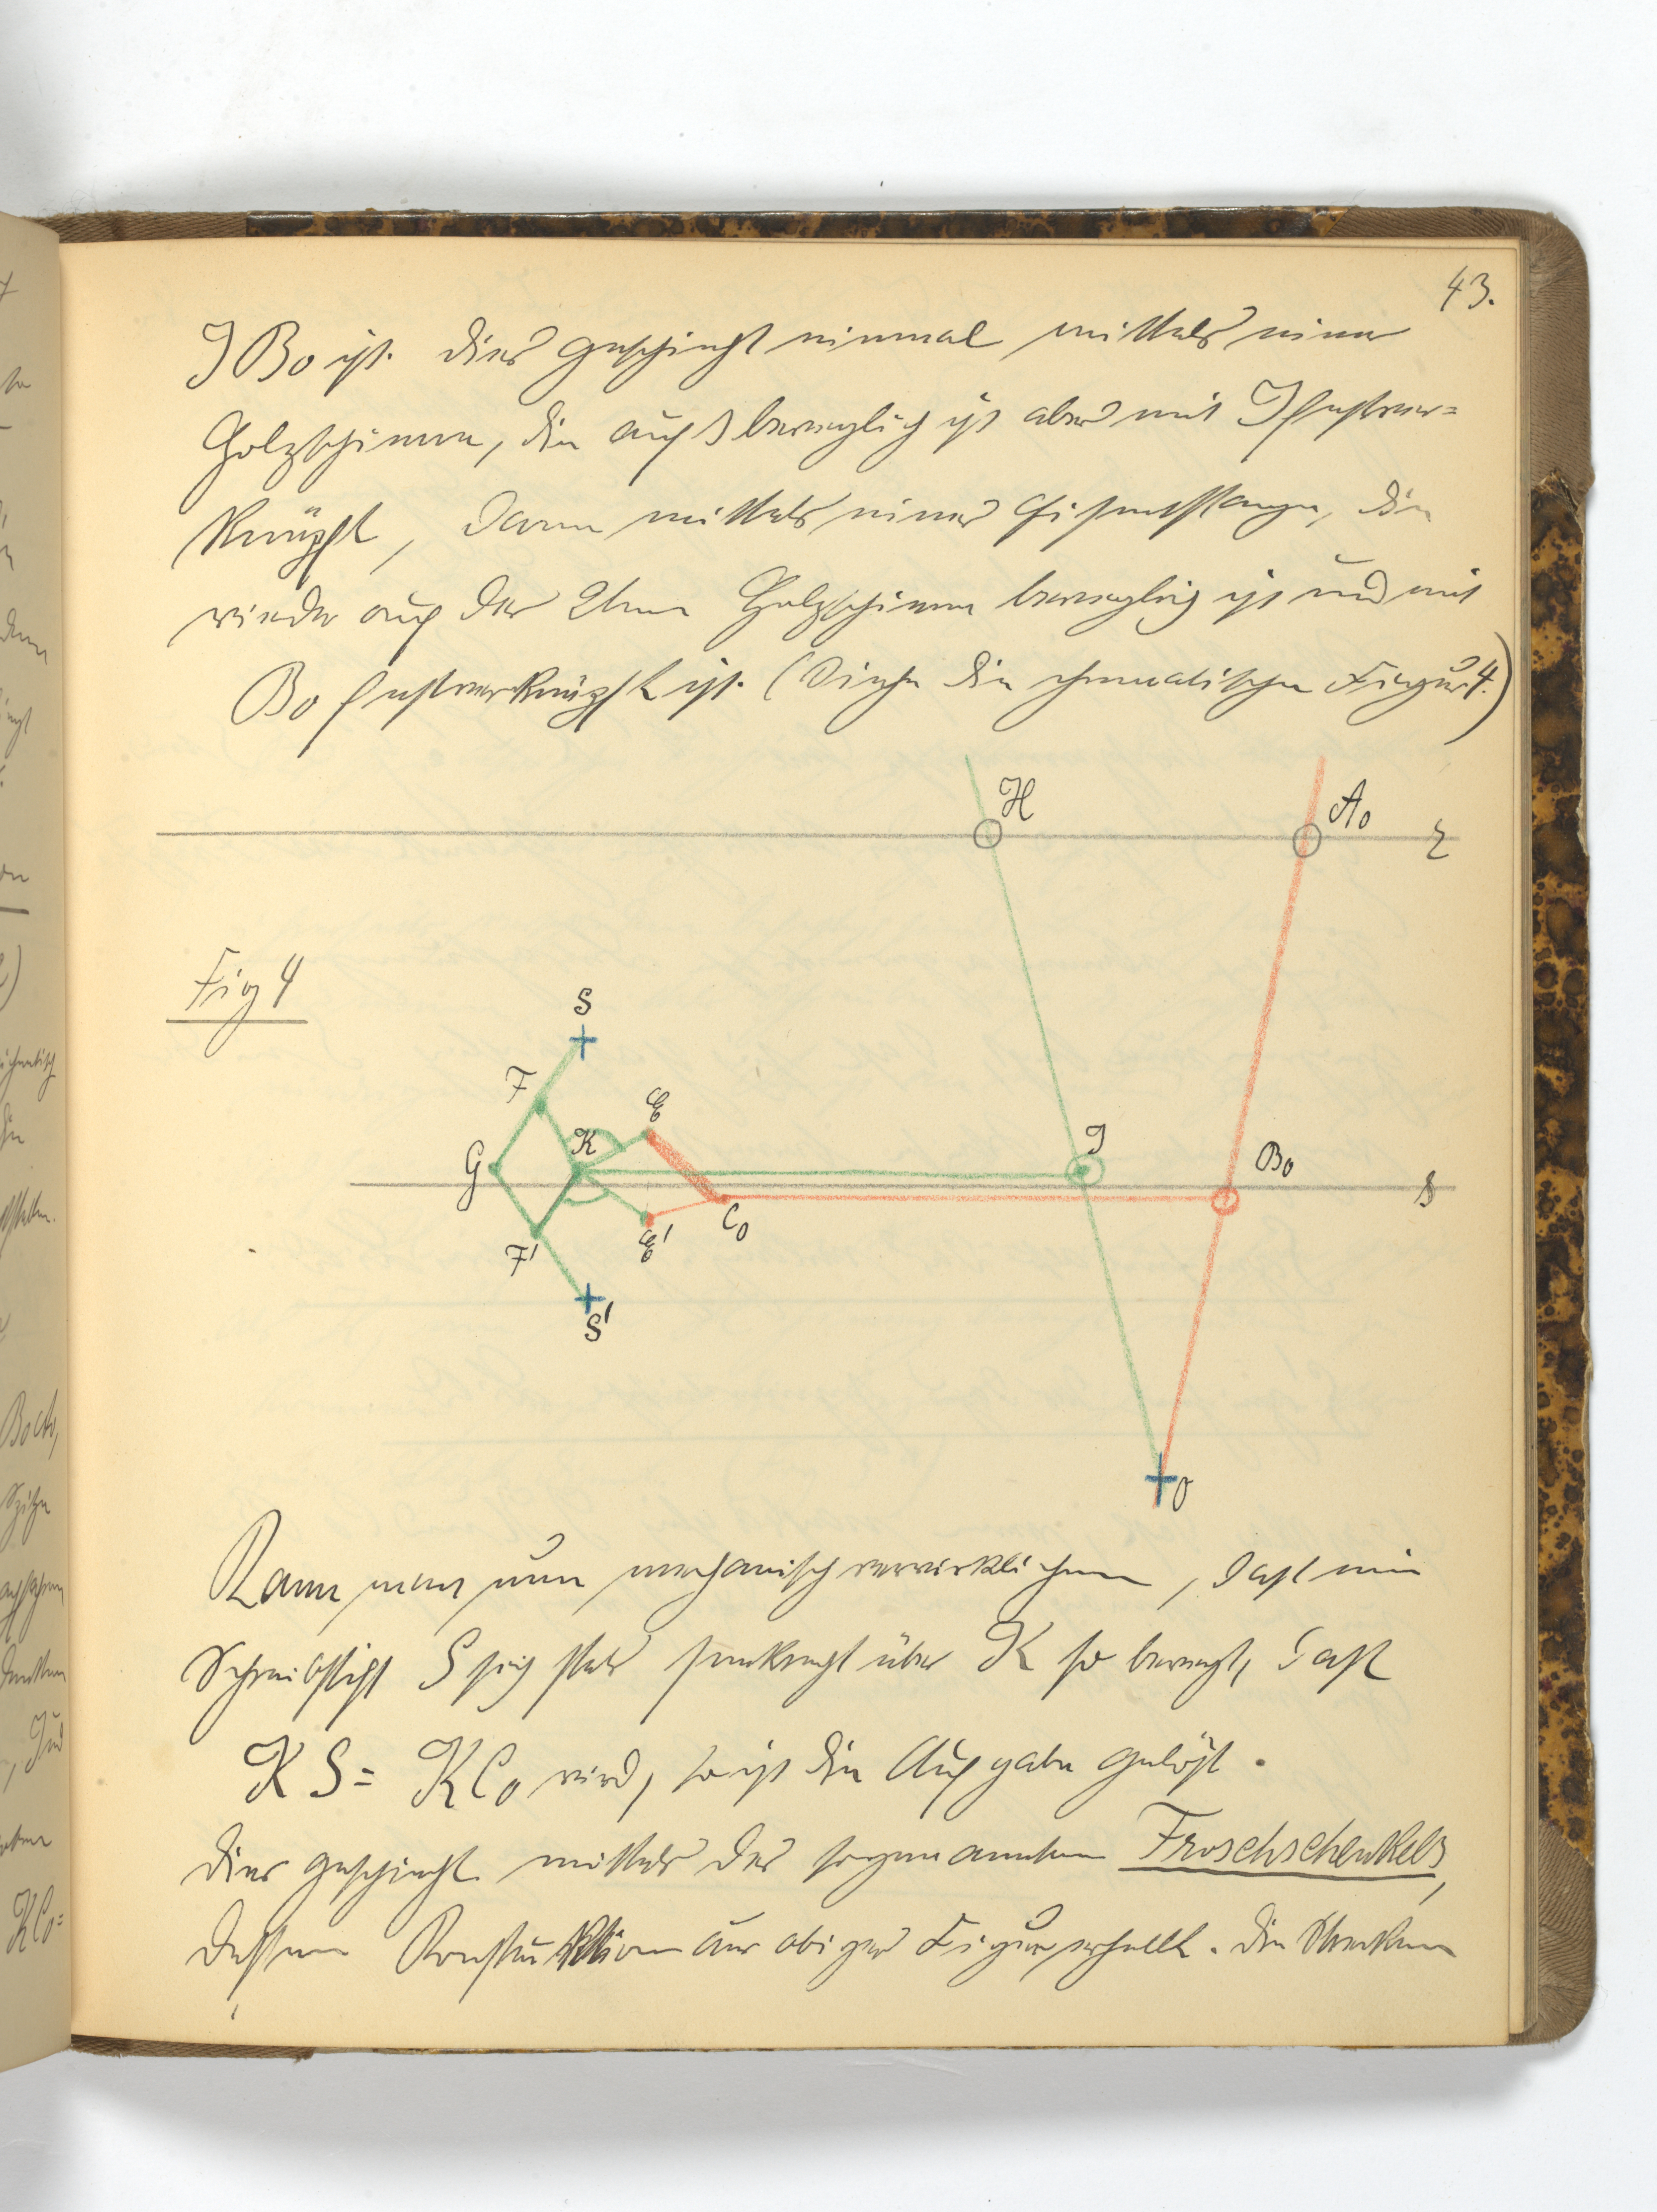 43.
J B₀ ist. Dies geschieht einmal mittels einer
Holzschiene, die auf s beweglich ist aber mit J fest ver=
knüpft, dann mittels einer Eisenstange, die
wieder auf der Holzschiene beweglich ist und mit
B₀ fest verknüpft ist. (Siehe die schematische Figur 4.)
H A₀ Σ
Fig 4
S
F E
K J B₀
G s
F' E' C₀
S'
O
Kann man nun mechanisch verwirklichen, daß ein
Schreibstift S sich stets senkrecht über K so bewegt, daß
K S = K C₀ wird, so ist die Aufgabe gelöst.
Dies geschieht mittels des sogenannten Froschschenkels,
dessen Konstruktion aus obiger Figur erhellt. Die Strecken